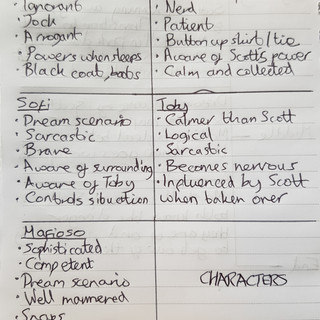 · Ignorant
· Jock
· Arrogant
· Powers when sleeps
· Black coat, boots
· Nerd
· Patient
· Button up shirt/tie
· Aware of Scott's power
· Calm and collected
Sofi
· Dream scenario
· Sarcastic
· Brave
· Aware of surrounding
· Aware of Toby
· Controls situation
Toby
· Calmer than Scott
· Logical
· Sarcastic
· Becomes nervous
· Influenced by Scott
when taken over
Mafioso
· Sophisticated
· Competent
· Dream scenario
· Well mannered
CHARACTERS